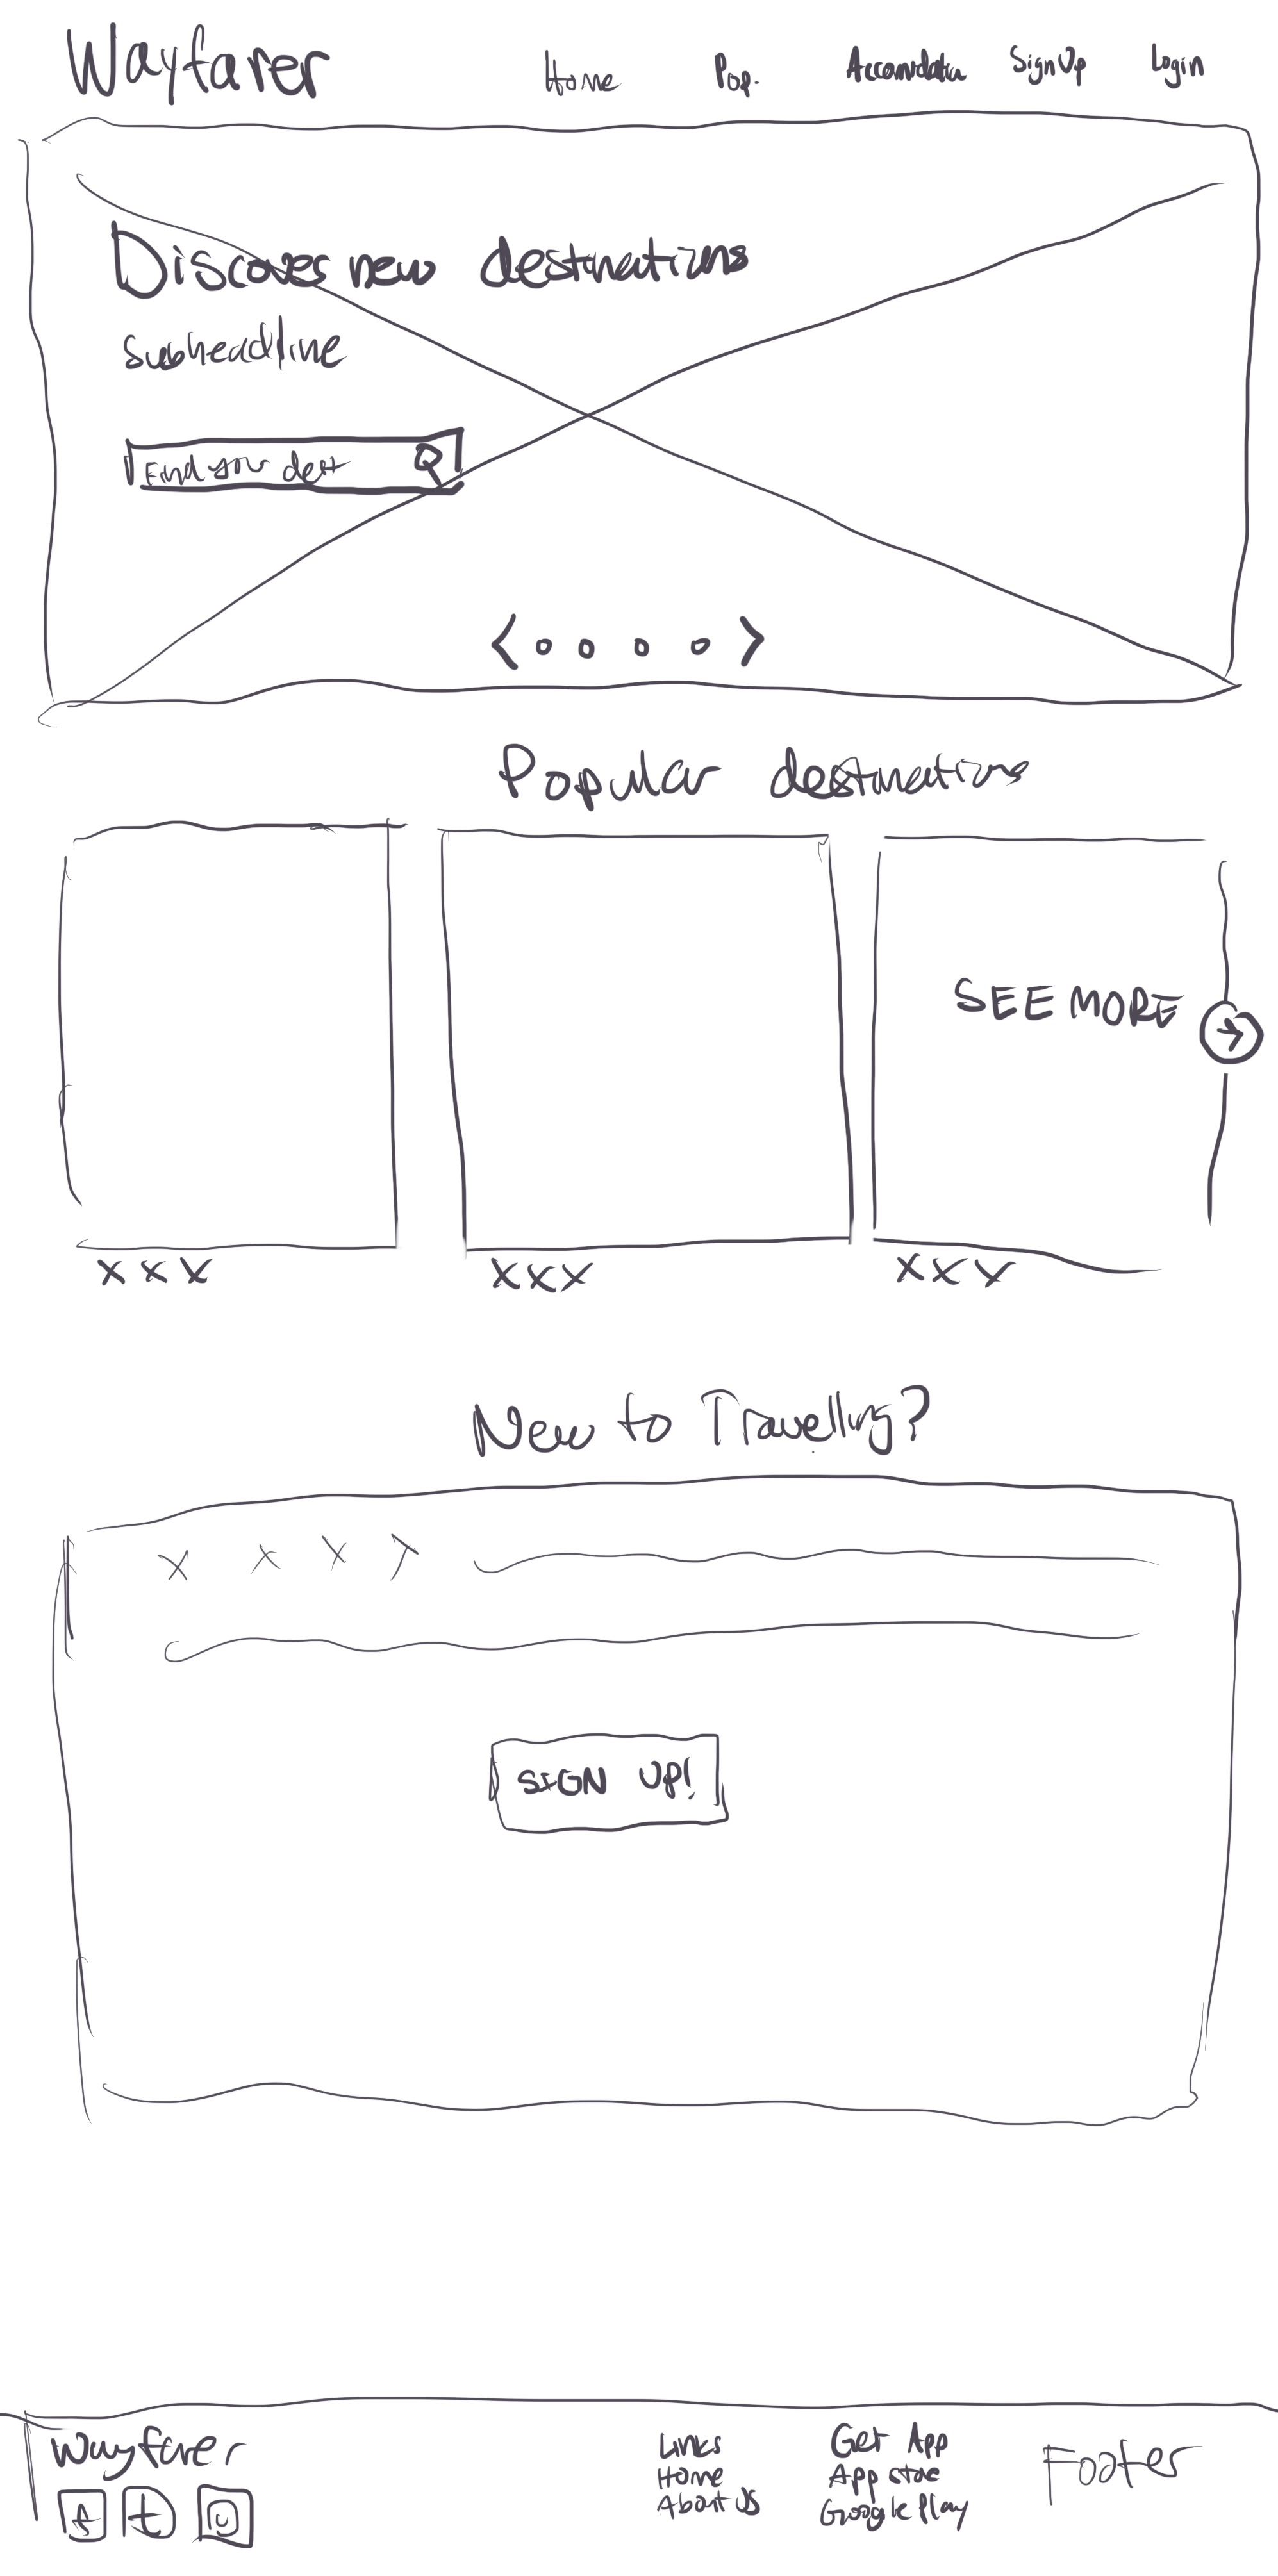 Wayfarer
Home Pop. Accomdata SignUp Login
Discover new destinations
Subheadline
Find your dest
< >
Popular destinations
SEE MORE
XXX XXX XXX
New to Travelling?
X X X X
SIGN UP!
Wayfarer
f t
Links
Home
About Us
Get App
App store
Google Play
Footer